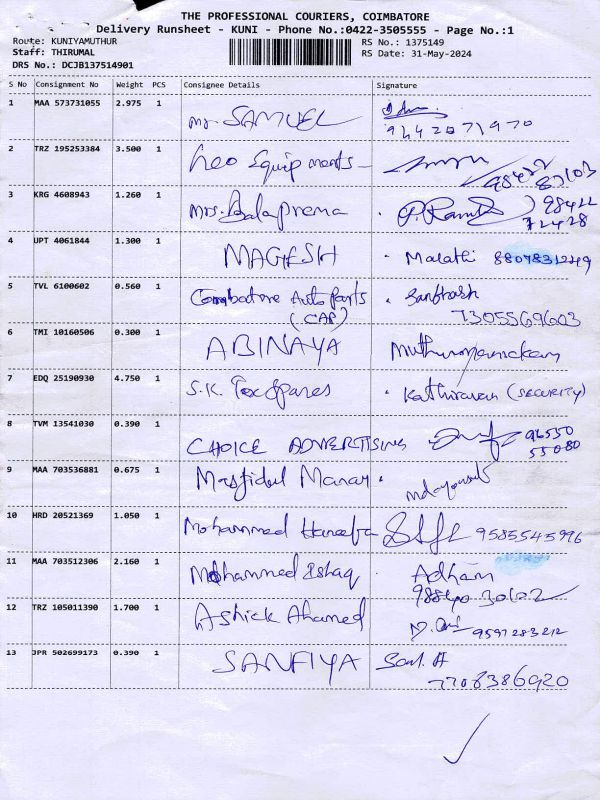 THE PROFESSIONAL COURIERS, COIMBATORE
Delivery Runsheet - KUNI - Phone No.:0422-3505555 - Page No.:1
Route: KUNIYAMUTHUR RS No.: 1375149
Staff: THIRUMAL RS Date: 31-May-2024
DRS No.: DCJB137514901
S No Consignment No Weight PCS Consignee Details Signature
1 MAA 573731055 2.975 1 Mr. SAMUEL
9442071970
2 TRZ 195253384 3.500 1 Leo Equipments 98422
87103
3 KRG 4608943 1.260 1 Mrs. Balaprema 98422
72428
4 UPT 4061844 1.300 1 MAGESH Malathi 8807831249
5 TVL 6100602 0.560 1 Coimbatore Auto Parts Santhosh
(CAP) 7305569603
6 TMI 10160506 0.300 1 ABINAYA Muthumanickam
7 EDQ 25190930 4.750 1 S.K. Tex Spares Kathiravan (SECURITY)
8 TVM 13541030 0.390 1 CHOICE ADVERTISING 96550
55080
9 MAA 703536881 0.675 1 Masjidul Manar
10 HRD 20521369 1.050 1 Mohammed Haneefa 9585545996
11 MAA 703512306 2.160 1 Mohammed Ishaq Adham
98840 30102
12 TRZ 105011390 1.700 1 Ashick Ahamed 9597283212
13 JPR 502699173 0.390 1 SANFIYA
7708386920